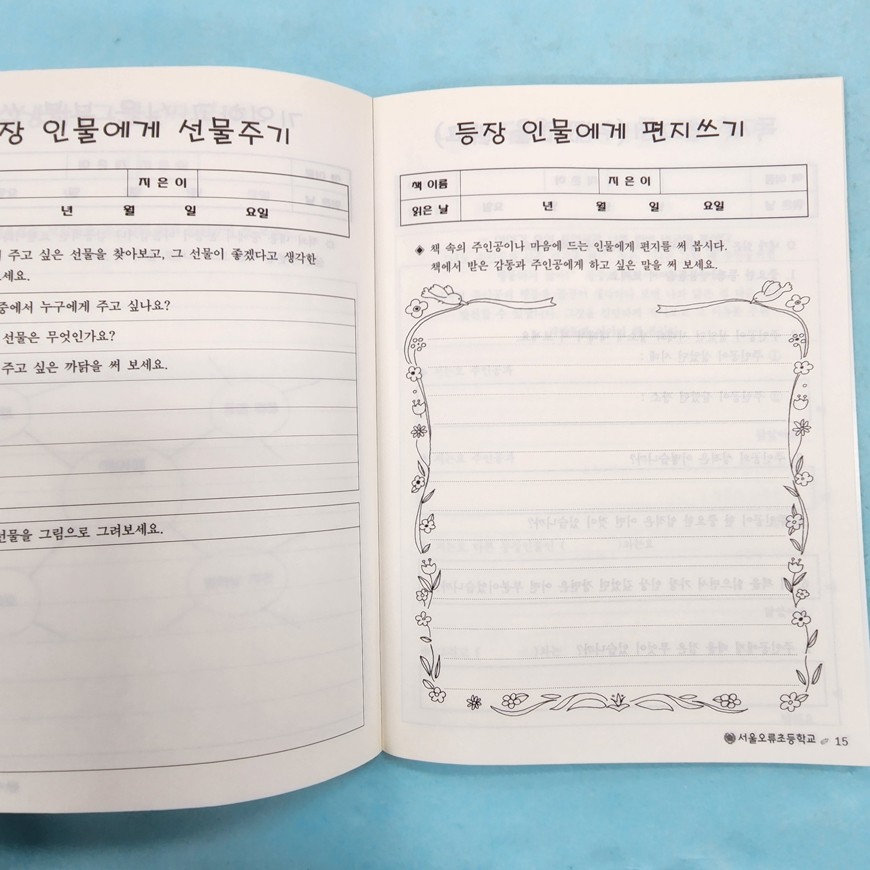 장 인물에게 선물주기
지 은 이
년 월 일 요일
주고 싶은 선물을 찾아보고, 그 선물이 좋겠다고 생각한
세요.
중에서 누구에게 주고 싶나요?
선물은 무엇인가요?
주고 싶은 까닭을 써 보세요.
선물을 그림으로 그려보세요.
등장 인물에게 편지쓰기
책 이름 지 은 이
읽은 날 년 월 일 요일
◈ 책 속의 주인공이나 마음에 드는 인물에게 편지를 써 봅시다.
책에서 받은 감동과 주인공에게 하고 싶은 말을 써 보세요.
서울오류초등학교 15